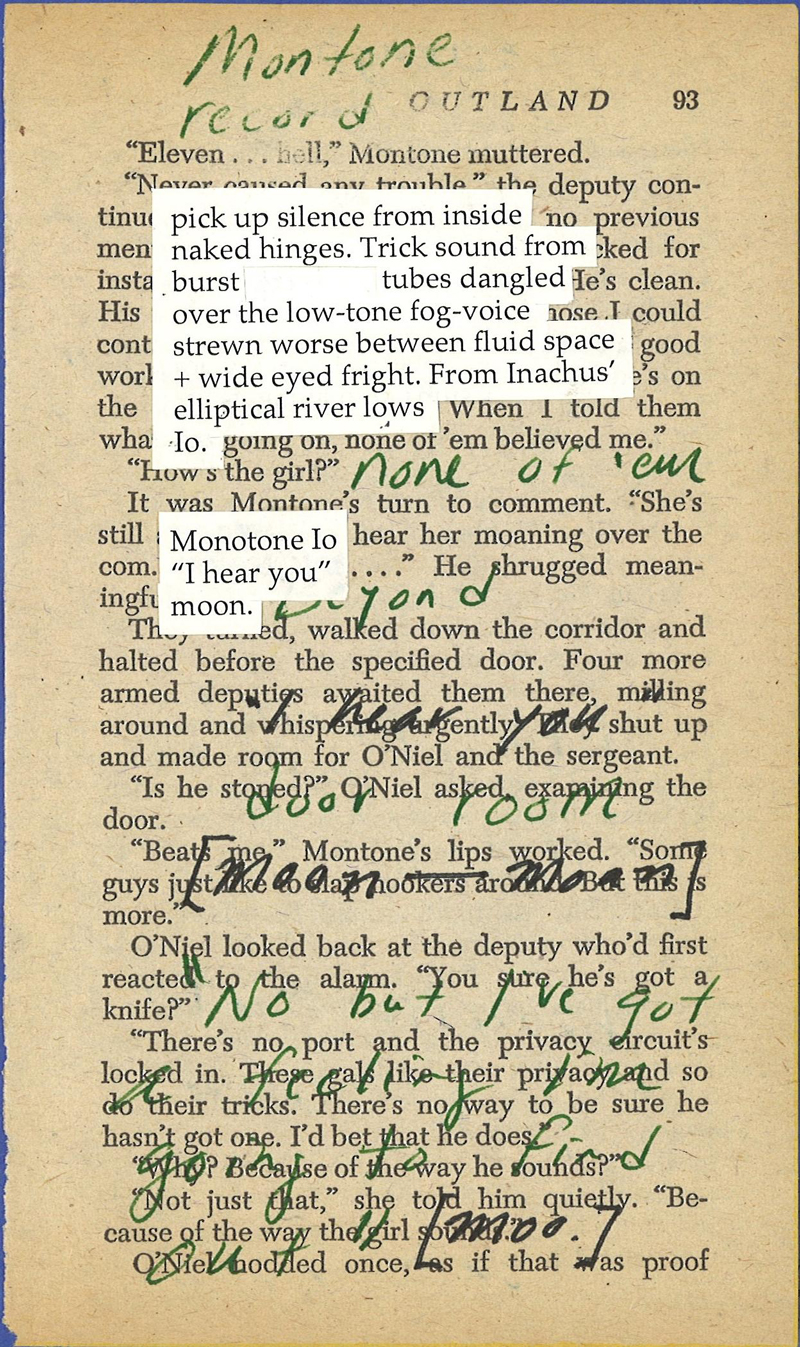 Montone
record OUTLAND 93
“Eleven . . . hell,” Montone muttered.
“Never caused any trouble,” the deputy con-
tinue pick up silence from inside no previous
men naked hinges. Trick sound from cked for
insta burst tubes dangled He’s clean.
His over the low-tone fog-voice hose I could
cont strewn worse between fluid space good
work + wide eyed fright. From Inachus’ e’s on
the elliptical river lows When I told them
wha Io. going on, none of ’em believed me.”
“How’s the girl?” none of ’em
It was Montone’s turn to comment. “She’s
still Monotone Io hear her moaning over the
com. “I hear you” . . . .” He shrugged mean-
ingfu moon. beyond
They turned, walked down the corridor and
halted before the specified door. Four more
armed deputies awaited them there, milling
around and whispering urgently. They shut up
“I hear you”
and made room for O’Niel and the sergeant.
“Is he stoned?” O’Niel asked, examining the
door room
door.
“Beats me.” Montone’s lips worked. “Some
guys just like to slap hookers around. But this is
[moon — moan]
more.”
O’Niel looked back at the deputy who’d first
reacted to the alarm. “You sure he’s got a
knife?” “No but I’ve got
“There’s no port and the privacy circuit’s
locked in. These gals like their privacy and so
a feeling I’m
do their tricks. There’s no way to be sure he
hasn’t got one. I’d bet that he does.”
“Why? Because of the way he sounds?”
going to find
“Not just that,” she told him quietly. “Be-
cause of the way the girl sounds.”
out” [moo.]
O’Niel nodded once, as if that was proof